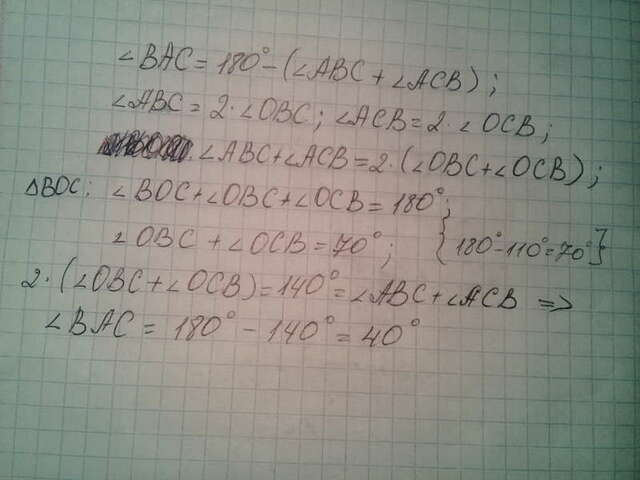 ∠BAC = 180° - (∠ABC + ∠ACB);
∠ABC = 2·∠OBC; ∠ACB = 2·∠OCB;
∠ABC + ∠ACB = 2·(∠OBC + ∠OCB);
△BOC: ∠BOC + ∠OBC + ∠OCB = 180°;
∠OBC + ∠OCB = 70°; {180° - 110° = 70°}
2·(∠OBC + ∠OCB) = 140° = ∠ABC + ∠ACB ⇒
∠BAC = 180° - 140° = 40°